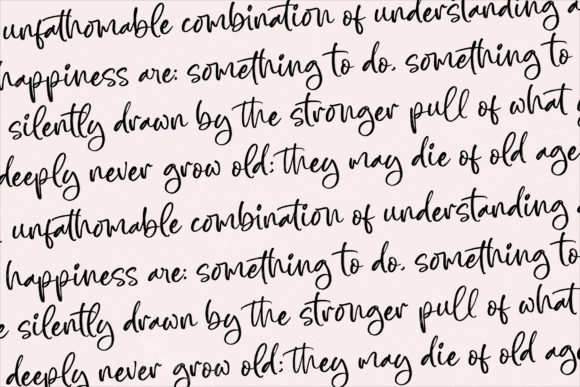 unfathomable combination of understanding a
happiness are: something to do, something to
silently drawn by the stronger pull of what
deeply never grow old; they may die of old age
unfathomable combination of understanding
happiness are: something to do, something to
silently drawn by the stronger pull of what
deeply never grow old; they may die of old age